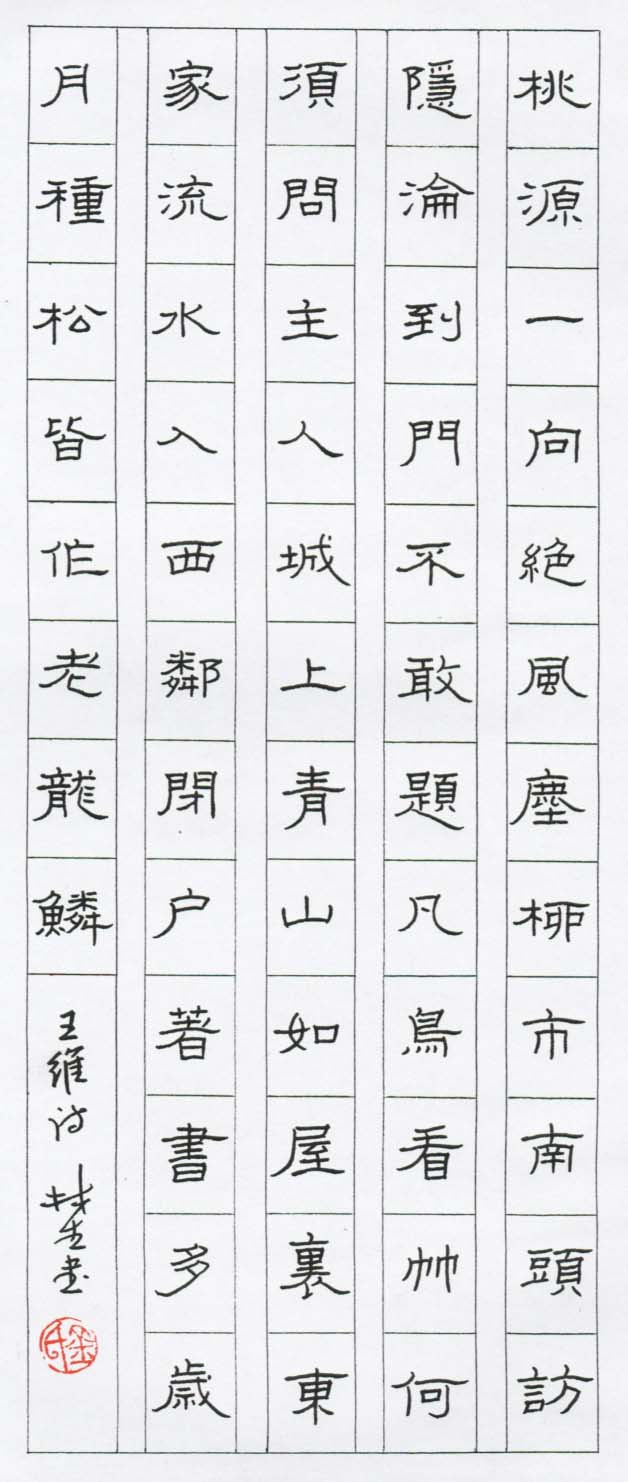 桃源一向絶風塵柳市南頭訪
隱淪到門不敢題凡鳥看竹何
須問主人城上青山如屋裏東
家流水入西鄰閉户著書多歲
月種松皆作老龍鱗
王維诗 书